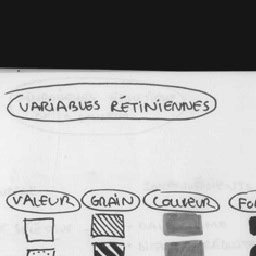 VARIABLES RÉTINIENNES
VALEUR GRAIN COULEUR